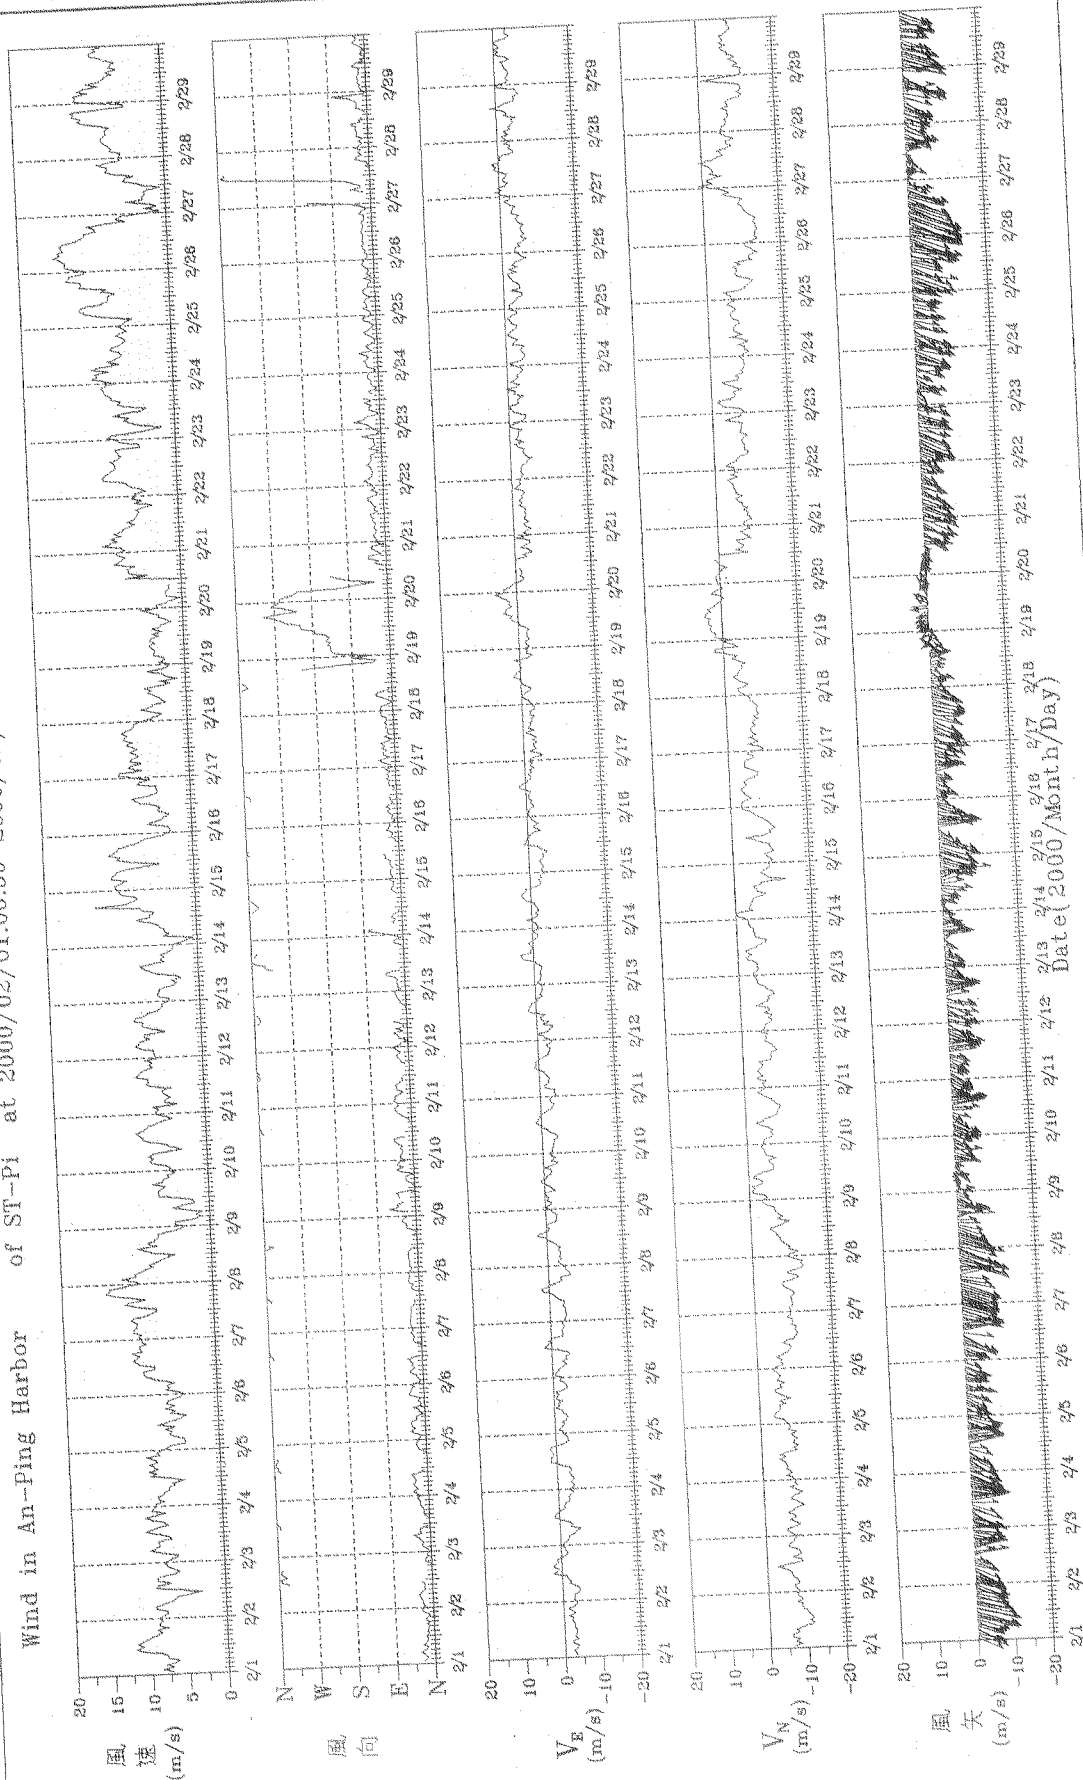 Wind in An-Ping Harbor of ST-Pi at 2000/02/01
20
15
10
5
0
風
速
(m/s)
2/1 2/2 2/3 2/4 2/5 2/6 2/7 2/8 2/9 2/10 2/11 2/12 2/13 2/14 2/15 2/16 2/17 2/18 2/19 2/20 2/21 2/22 2/23 2/24 2/25 2/26 2/27 2/28 2/29
N
W
S
E
N
風
向
2/1 2/2 2/3 2/4 2/5 2/6 2/7 2/8 2/9 2/10 2/11 2/12 2/13 2/14 2/15 2/16 2/17 2/18 2/19 2/20 2/21 2/22 2/23 2/24 2/25 2/26 2/27 2/28 2/29
20
10
0
-10
-20
VE
(m/s)
2/1 2/2 2/3 2/4 2/5 2/6 2/7 2/8 2/9 2/10 2/11 2/12 2/13 2/14 2/15 2/16 2/17 2/18 2/19 2/20 2/21 2/22 2/23 2/24 2/25 2/26 2/27 2/28 2/29
20
10
0
-10
-20
VN
(m/s)
2/1 2/2 2/3 2/4 2/5 2/6 2/7 2/8 2/9 2/10 2/11 2/12 2/13 2/14 2/15 2/16 2/17 2/18 2/19 2/20 2/21 2/22 2/23 2/24 2/25 2/26 2/27 2/28 2/29
20
10
0
-10
-20
風
矢
(m/s)
2/1 2/2 2/3 2/4 2/5 2/6 2/7 2/8 2/9 2/10 2/11 2/12 2/13 2/14 2/15 2/16 2/17 2/18 2/19 2/20 2/21 2/22 2/23 2/24 2/25 2/26 2/27 2/28 2/29
Date(2000/Month/Day)